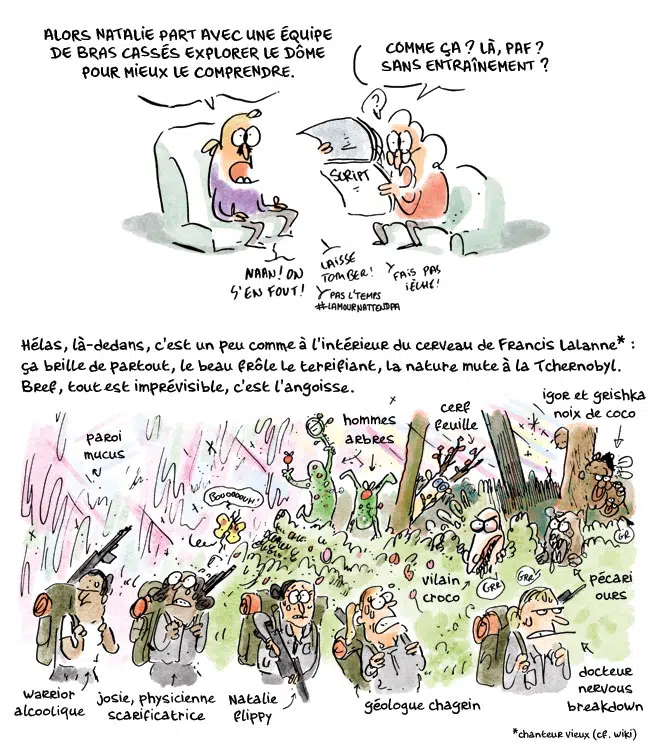 ALORS NATALIE PART AVEC UNE ÉQUIPE
DE BRAS CASSÉS EXPLORER LE DÔME
POUR MIEUX LE COMPRENDRE.
COMME ÇA ? LÀ, PAF ?
SANS ENTRAÎNEMENT ?
?
SCRIPT
NAAN! ON
S'EN FOUT!
LAISSE
TOMBER!
PAS L'TEMPS
#LAMOURNATTENDPA
FAIS PAS
IÈCHE!
Hélas, là-dedans, c'est un peu comme à l'intérieur du cerveau de Francis Lalanne* :
ça brille de partout, le beau frôle le terrifiant, la nature mute à la Tchernobyl.
Bref, tout est imprévisible, c'est l'angoisse.
paroi
mucus
BOOOOOUH!
hommes
arbres
cerf
feuille
igor et grishka
noix de coco
GR
vilain
croco
GRR
GRR
pécari
ours
warrior
alcoolique
josie, physicienne
scarificatrice
Natalie
flippy
géologue chagrin
docteur
nervous
breakdown
*chanteur vieux (cf. wiki)